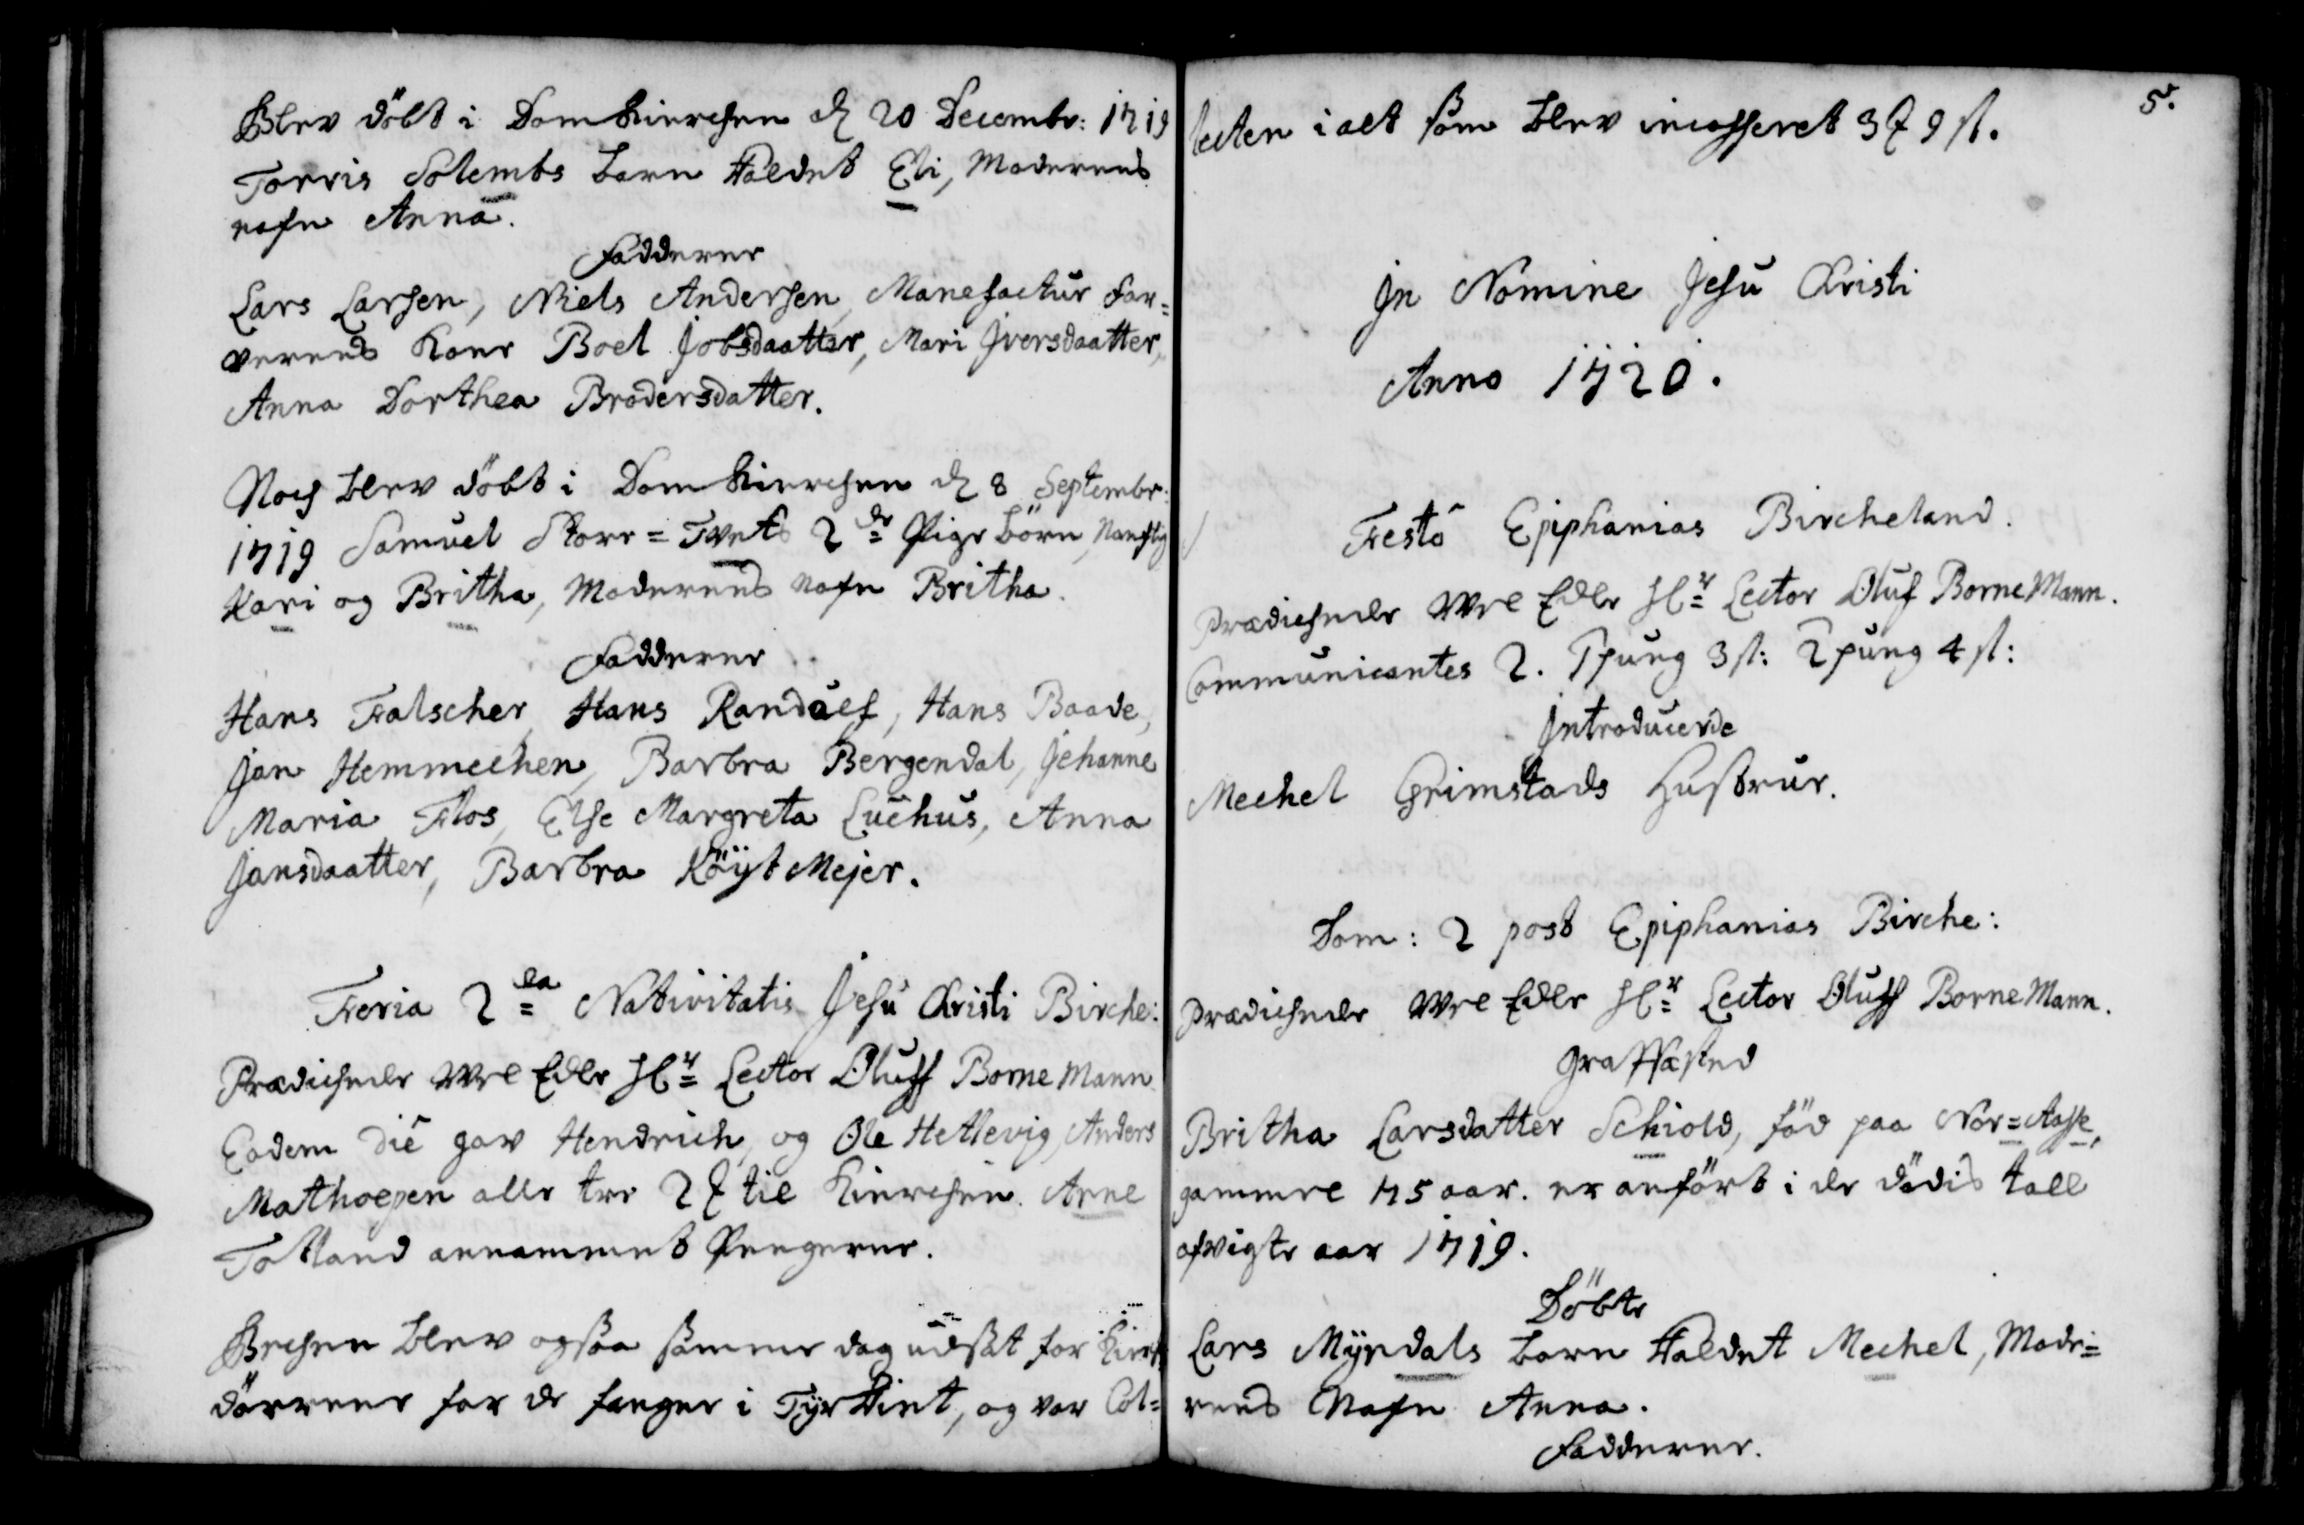 Blev döbt i Domkirchen d. 20 Decembr: 1719
Torris Solembs barn kaldet Eli, Moderens
nafn Anna.
Fadderne
Lars Larsen, Niels Andersen, Manefactur far=
verens kone Boel Jobsdaatter, Mari Iversdaatter,
Anna Dorthea Brodersdatter.
Noch blev döbt i Domkirchen d. 8 Septembr:
1719 Samuel Store=Tvets 2de Pige börn, Nemlig
Kari og Britha, Moderens nafn Britha.
Fadderne
Hans Falscher, Hans Randulf, Hans Baade,
Jan Hemmechen, Barbra Bergendal, Jehanne
Maria Flos, Else Margreta Luchus, Anna
Jansdaatter, Barbra Köyt Mejer.
Feria 2da Nativitatis Jesu Christi Birche:
Prædichede Wel Edle Hr Lector Oluff BorneMann
Eodem die gav Hendrich, og Ole Hetlevig, Anders
Mathoepen alle tre 2 til Kirchen. Arne
Totland annammet Pengene.
Bechen blev ogsaa samme dag udsat for Kirch
dörrene for de fanger i Tyrkiet, og var Col=
5.
lecten i alt som blev incasseret 3 9 s.
In Nomine Jesu Christi
Anno 1720.
Festo Epiphanias Bircheland.
Prædichede Wel Edle Hr Lector Oluf BorneMann.
Communicantes 2. 1 pung 3 s: 2 pung 4 s:
Introducerde
Mechel Grimstads Hustrue.
Dom: 2 post Epiphanias Birche:
Prædichede Wel Edle Hr Lector Oluff BorneMann.
Graffæsted
Britha Larsdatter Schiold, föd paa Nor=Aasse,
gammel 75 aar. er anfört i de dödis tall
afvigte aar 1719.
Döbte
Lars Myrdals barn kaldet Mechel, Mode=
rens Nafn Anna.
Fadderne.